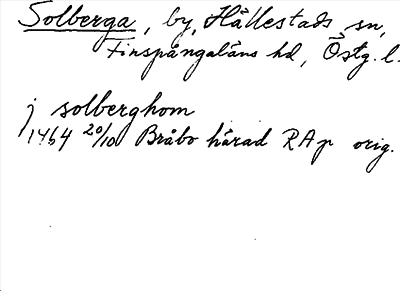 Solberga, by, Hällestads sn,
Finspångaläns hd, Östg. l.
j solberghom
1464 20/10 Bråbo härad RAp orig.